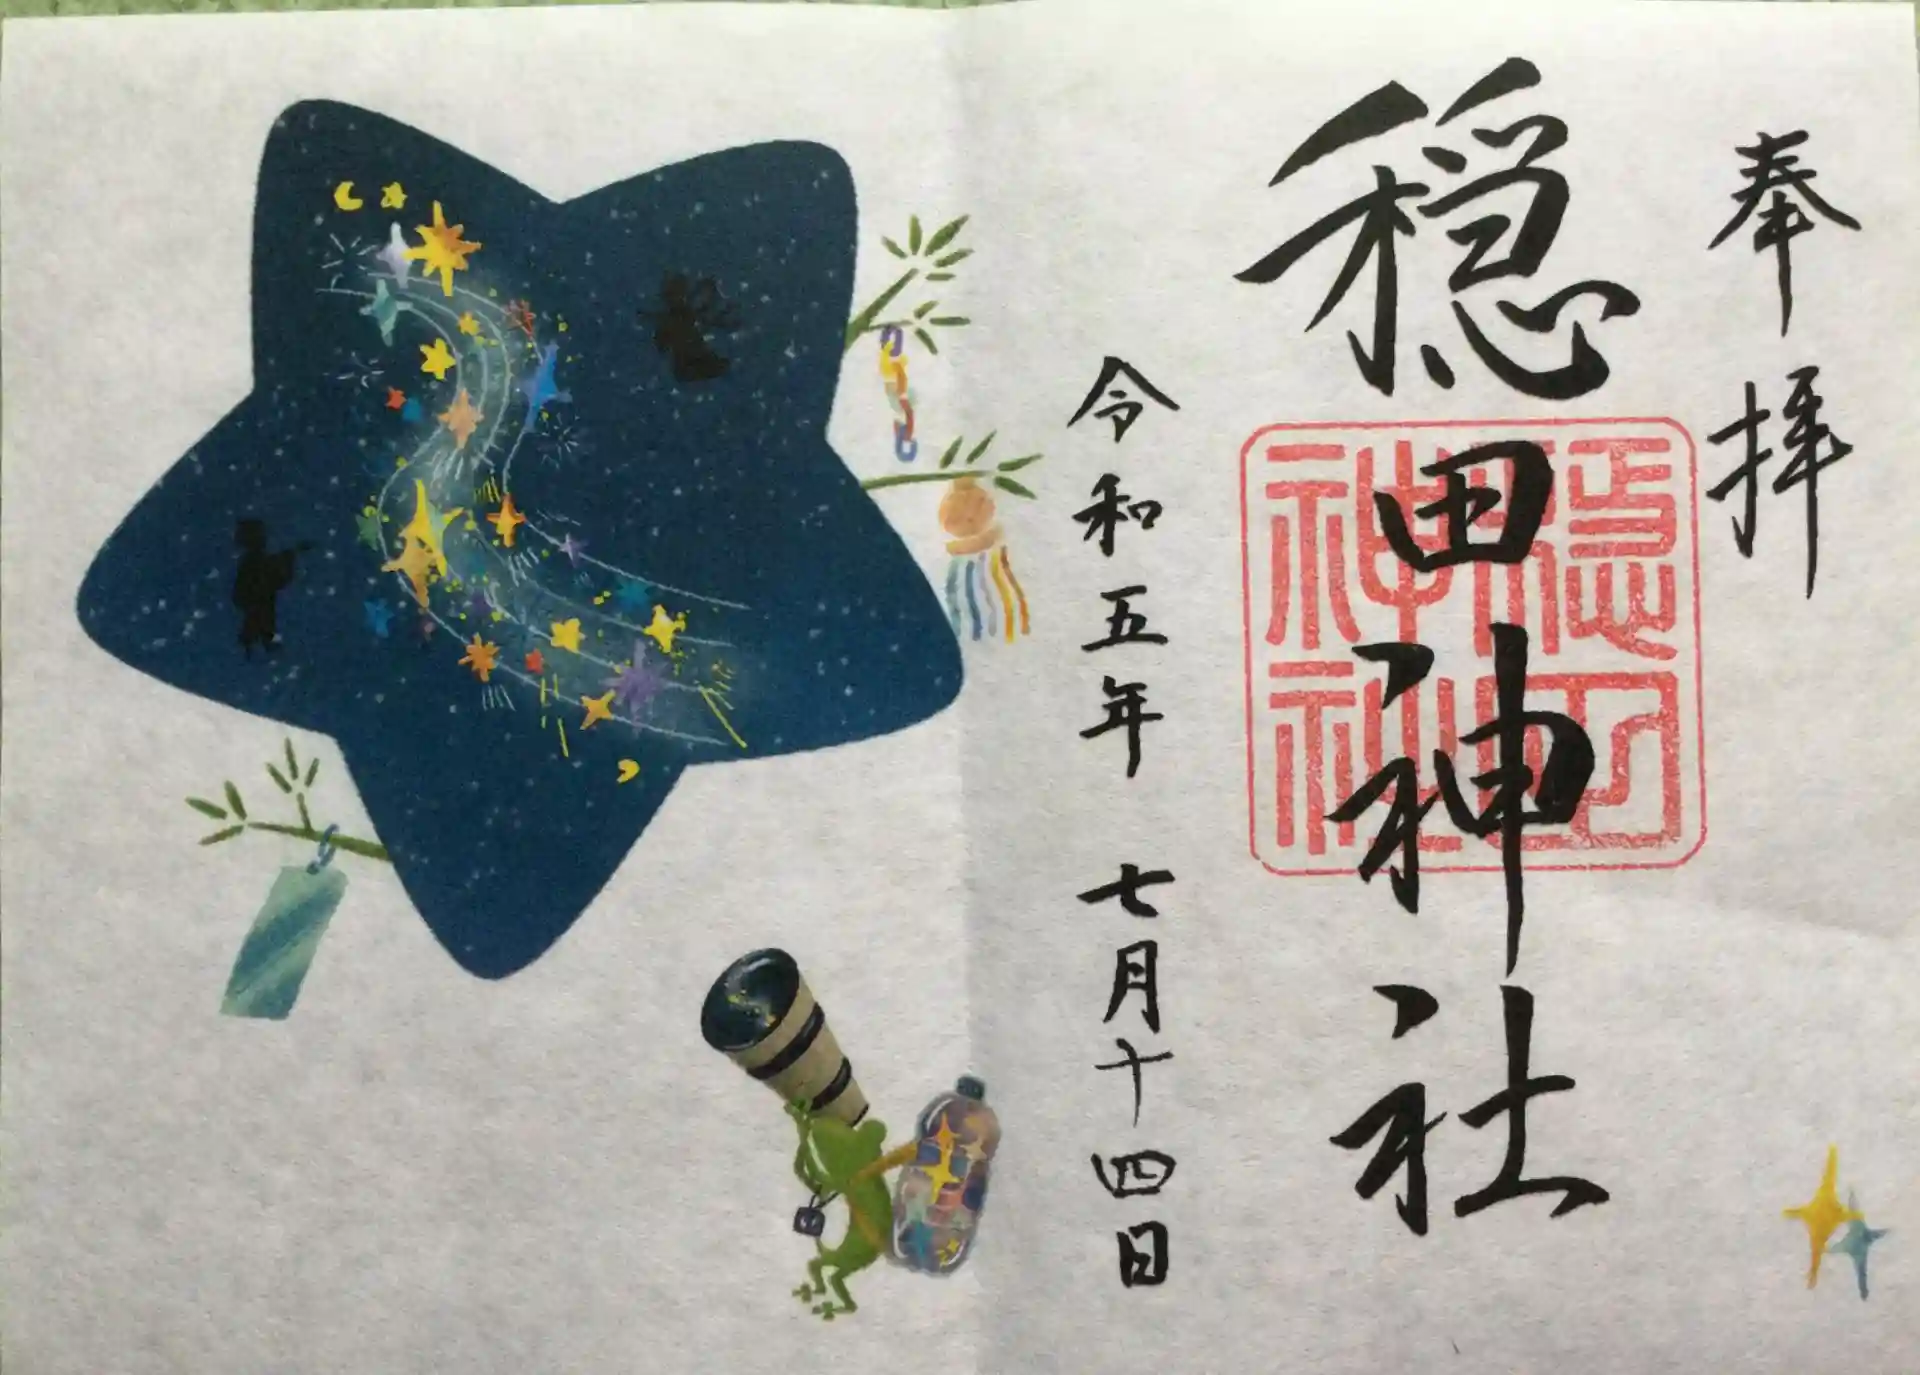 奉拝
穏田神社
穏田
神社
令和五年 七月十四日